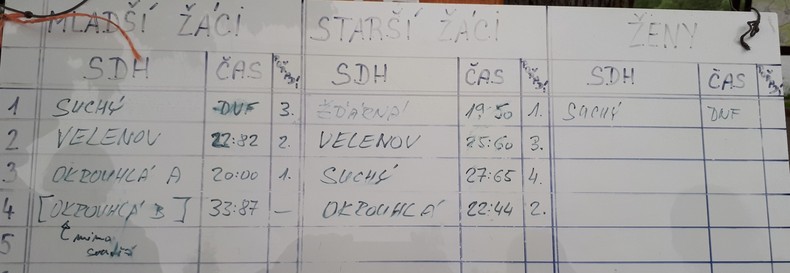 MLADŠÍ ŽÁCI STARŠÍ ŽÁCI ŽENY
SDH ČAS SDH ČAS SDH ČAS
1 SUCHÝ DNF 3. ŽĎÁRNÁ 19:50 1. SUCHÝ DNF
2 VELENOV 22:82 2. VELENOV 25:60 3.
3 OKROUHLÁ A 20:00 1. SUCHÝ 27:65 4.
4 [OKROUHLÁ B] 33:87 – OKROUHLÁ 22:44 2.
5 mimo
soutěž